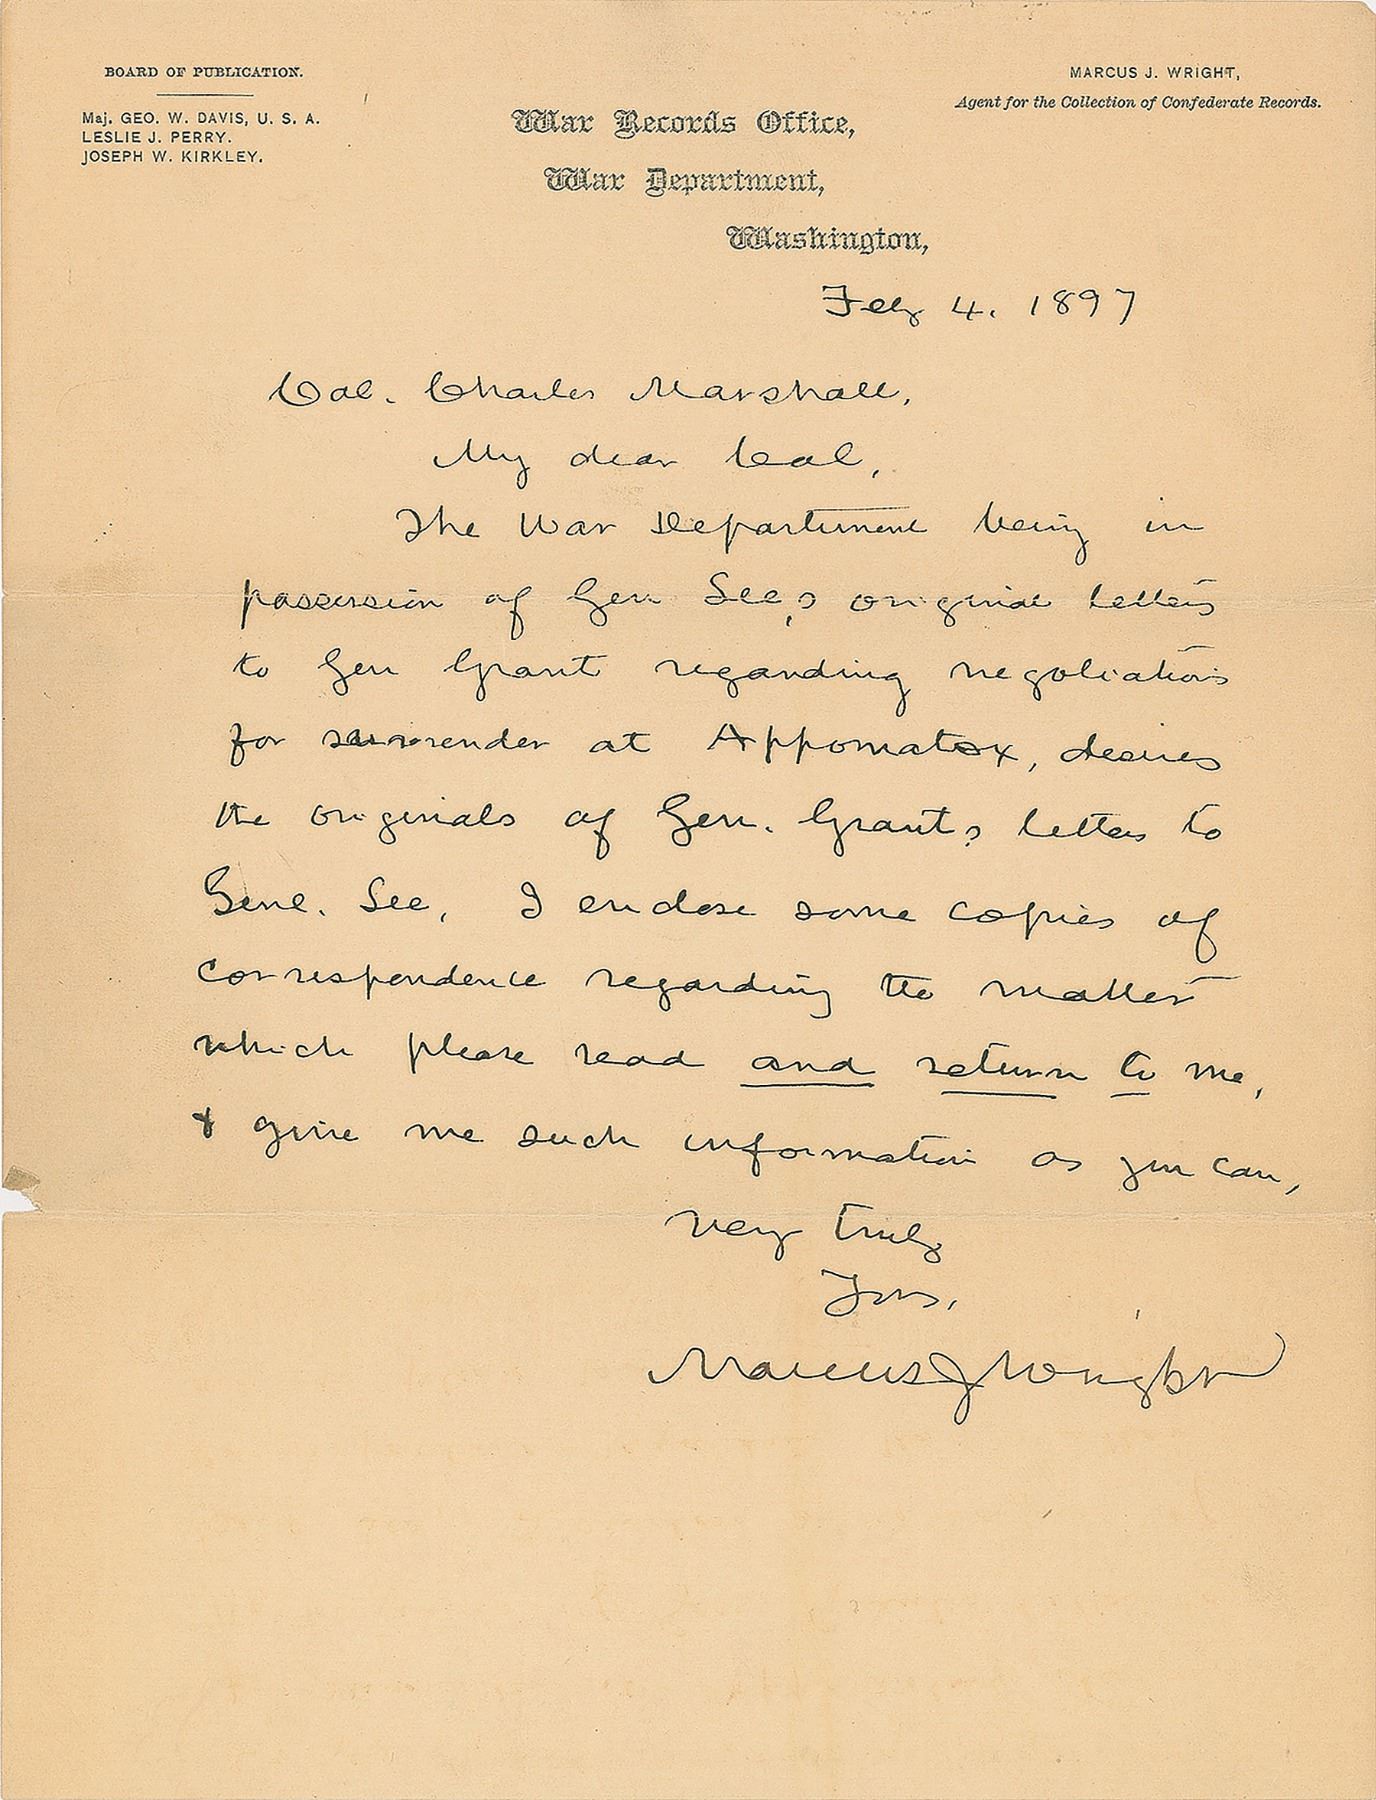 BOARD OF PUBLICATION.
Maj. GEO. W. DAVIS, U. S. A.
LESLIE J. PERRY.
JOSEPH W. KIRKLEY.
MARCUS J. WRIGHT,
Agent for the Collection of Confederate Records.
War Records Office,
War Department,
Washington,
Feby 4. 1897
Col. Charles Marshall,
My dear Col,
The War Department being in
possession of Gen Lee,s original letters
to Gen Grant regarding negotiations
for surrender at Appomatox, desires
the originals of Gen. Grant,s letters to
Genl. Lee, I enclose some copies of
correspondence regarding the matter
which please read and return to me,
& give me such information as you can,
Very truly
Yrs,
Marcus J Wright